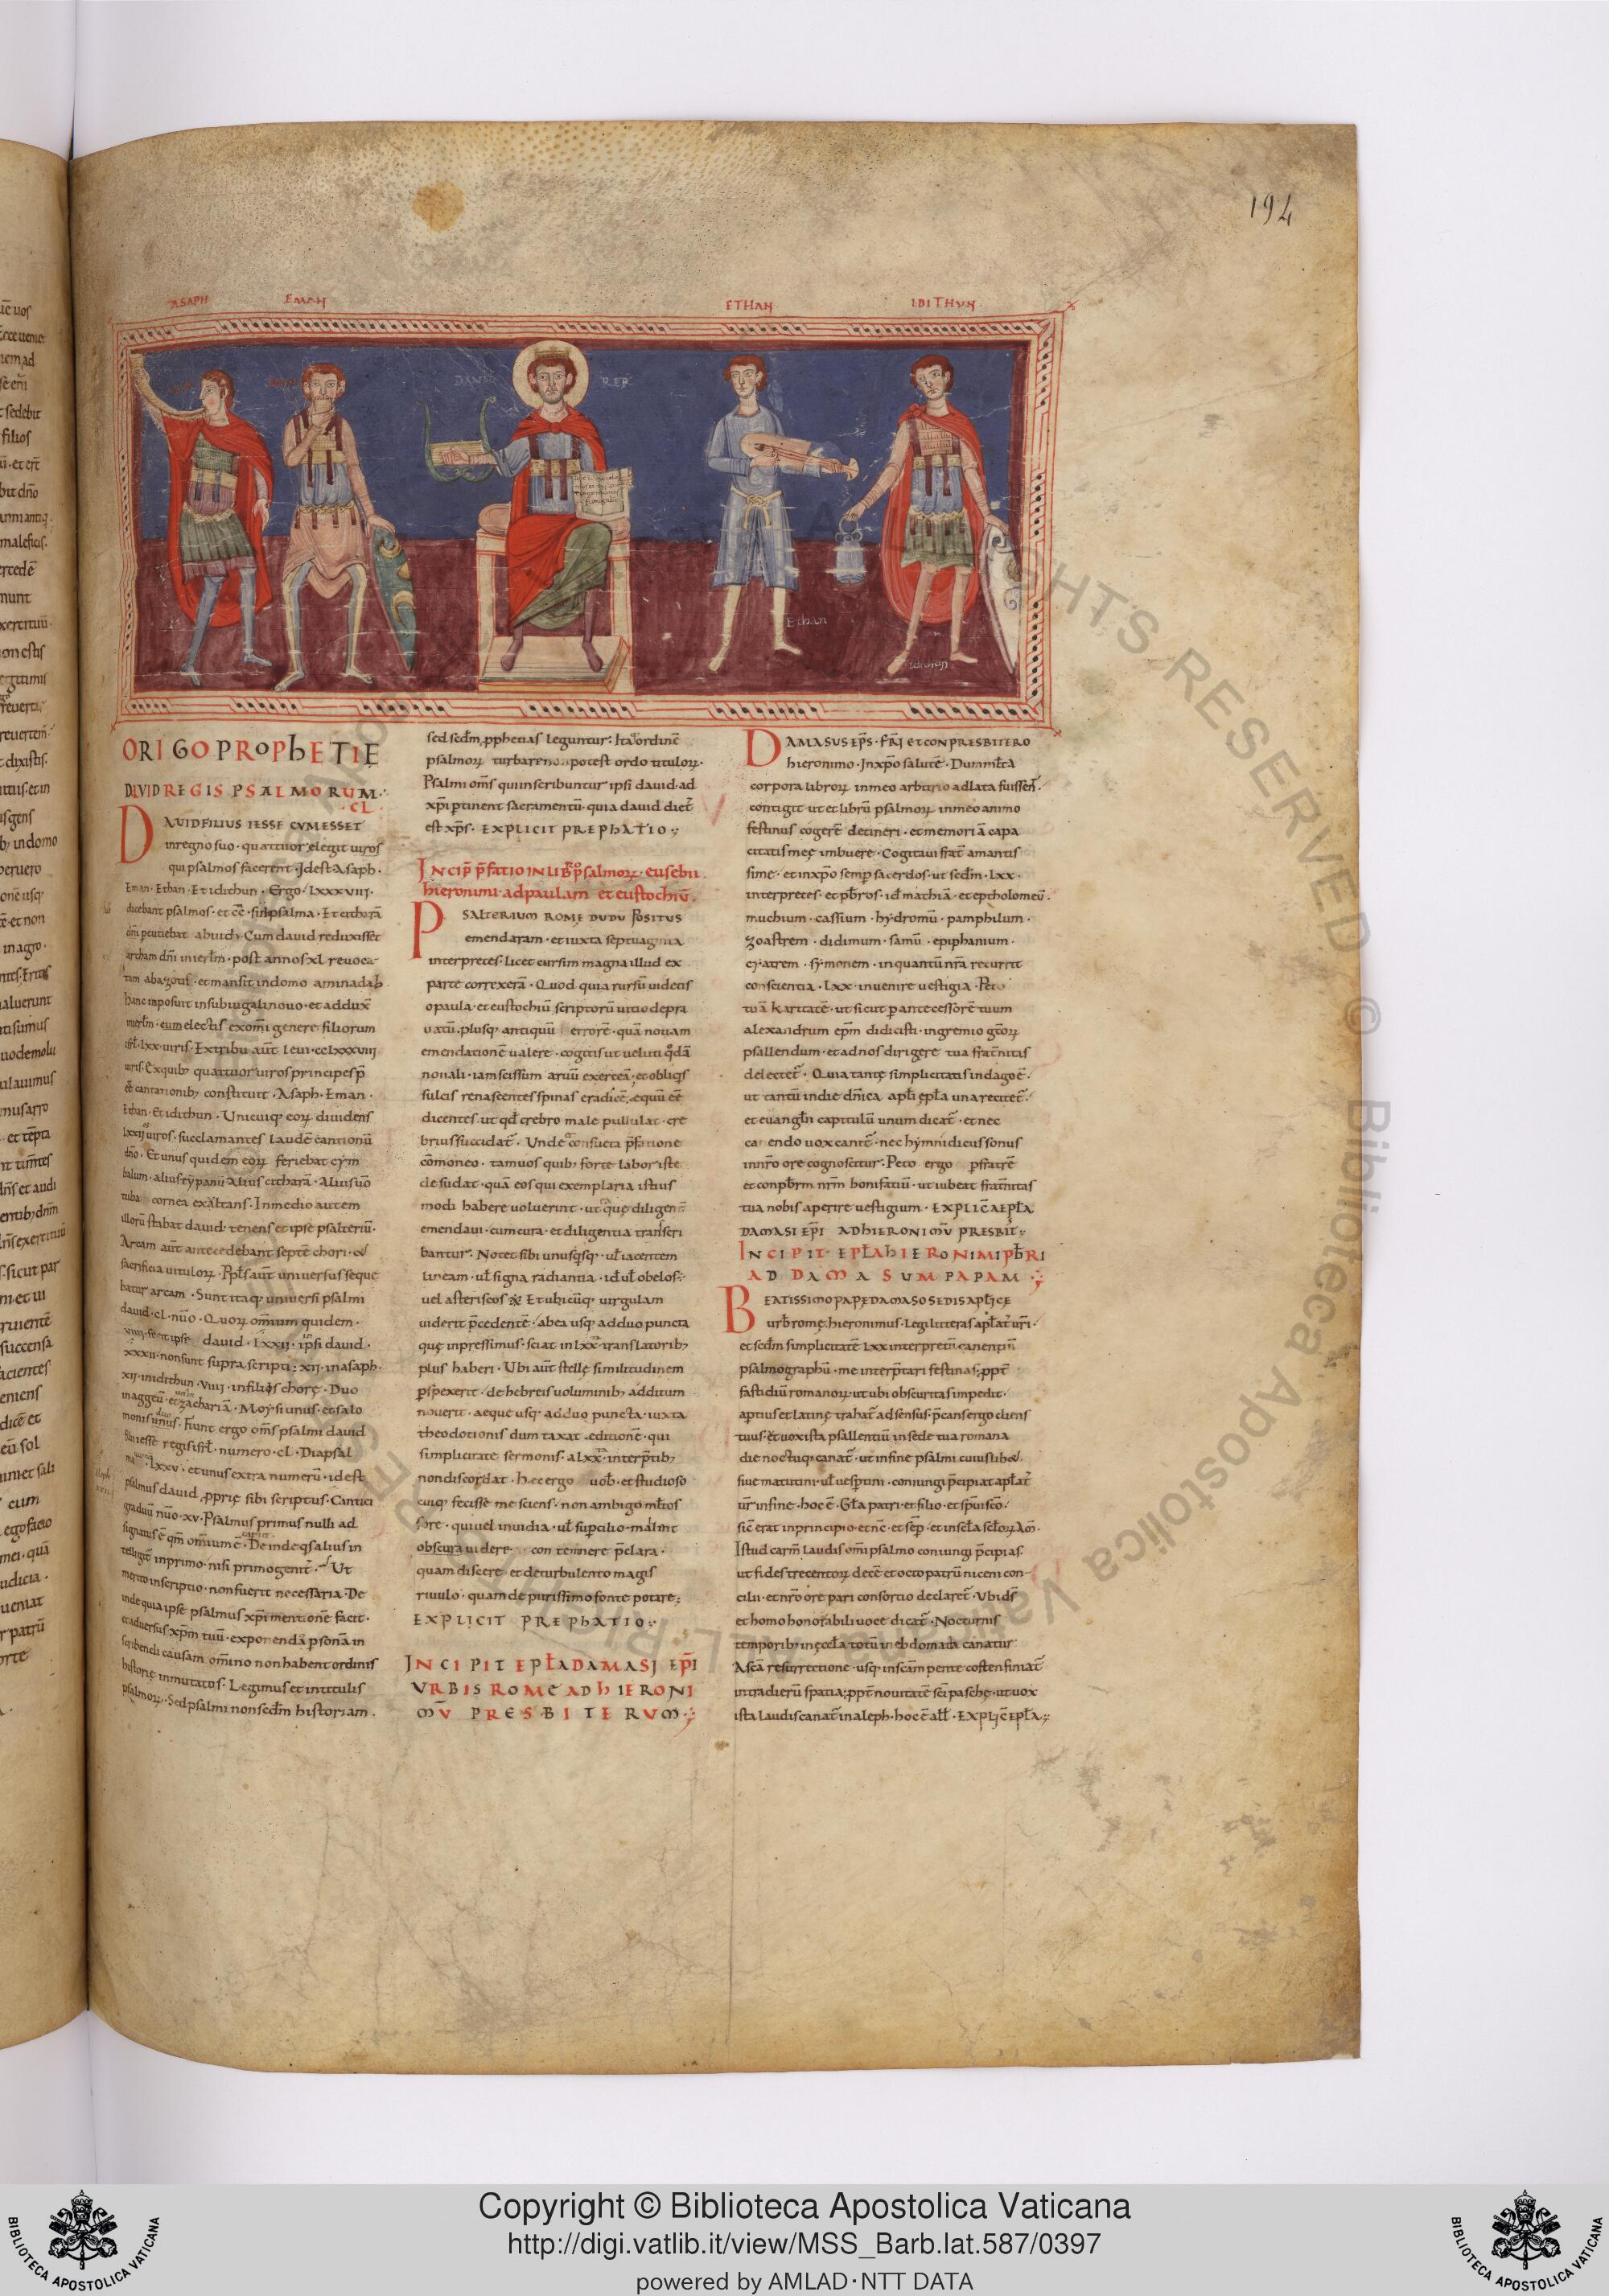 194
ASAPH EMAN ETHAN IDITHUN
DAVID REX
Ethan
Idithun
ORIGO PROPhETIE
DAVID REGIS PSALMORUM
CL
DAVID FILIUS IESSE CVM ESSET
in regno suo · quattuor elegit uiros
qui psalmos facerent · Id est Asaph ·
Eman · Ethan · Et idithun · Ergo · LXXXVIII ·
dicebant psalmos · et
Cum dauid reduxisset
archam dñi in ierlm̄ · post annos xl reuoca
et mansit in domo aminadab
hanc inposuit in subiugali nouo · et addux̄
ierl̄m · cum electis ex om̄i genere filiorum
isrl̄ · lxx · uiris · Ex tribu aūt leui · cclxxxviii
uiris · Ex quib; quattuor uiros principes p̄
cantationib; constituit · Asaph · Eman ·
Ethan · Et idithun · Unicuiq; eorꝝ diuidens
lxxii uiros · succlamantes laudē cantionū
dño · Et unus quidem eorꝝ feriebat cym
balum · alius tẏpanū · Alius citharā · Alius ūo
tuba cornea exaltans · In medio autem
illorū stabat dauid · tenens et ipse psalteriū ·
Arcam aūt antecedebant septē chori · et
sacrificia uitulorꝝ · Ppl̄s aūt uniuersus seque
batur arcam · Sunt itaq; uniuersi psalmi
dauid · cl · nūo · Quorꝝ omnium quidem ·
viiii · fecit ipse dauid · lxxii · ipsi dauid ·
xxxii · non sunt supra scripti · xii · in asaph ·
xii · in idithun · viiii · in filios chorę · Duo
in aggeū · et zachariā · Moysi unus · et salo
monis unus · Fiunt ergo om̄s psalmi dauid
filii iesse regis isrl̄ · numero · cl · Diapsal
ma · lxxv · et unus extra numerū · id est
psalmus dauid ꝓprię sibi scriptus · Cantici
graduū nūo · xv · Psalmus primus nulli ad
signatus ē qm̄ omniū ē · Deinde q̄s alius in
telligit̄ in primo · nisi primogenit̄ · Ut
merito inscriptio · non fuerit necessaria · De
inde quia ipse psalmus xp̄i mentionē facit ·
et aduersus xp̄m tuū · exponendā psonā in
scribendi causam om̄ino non habent ordinis
historię inmutatos · Legimus et in titulis
psalmorꝝ · Sed psalmi non sed̄m historiam ·
sed sed̄m ꝓphetias leguntur · Ita ordinē
psalmorꝝ turbare non potest ordo titulorꝝ ·
Psalmi om̄s qui inscribuntur ipsi dauid · ad
xp̄i ptinent sacramentū · quia dauid dict̄
est xp̄s · EXPLICIT PREPHATIO
INCIP̄ P̄FATIO IN LIBꝛ̄ P̄salmorꝝ · eusebii
hieronimi · ad paulam et eustochiū ·
PSALTERIUM ROME DUDU POSITUS
emendaram · et iuxta septuaginta
interpretes · licet cursim magna illud ex
parte correxerā · Quod quia rursū uidetis
o paula · et eustochiū scriptorū uitio depra
uatū · plusq; antiquū errorē · quā nouam
emendationē ualere · cogitis ut ueluti q̄dā
nouali · iam scissum aruū exerceā · et obliq̄s
sulcis renascentes spinas eradicē · equū eē
dicentes · ut qd̄ crebro male pullulat · cre
brius succidat̄ · Unde consueta p̄fatione
cōmoneo · tam uos quib; forte labor iste
desudat · quā eos qui exemplaria istius
modi habere uoluerint · ut quę diligent̄
emendaui · cum cura · et diligentia transcri
bantur · Notet sibi unusq̄sq; · ul̄ iacentem
lineam · ul̄ signa radiantia · id ul̄ obelos
uel asteriscos ※ Et ubicūq; uirgulam
uiderit p̄cedentē · ab ea usq; ad duo puncta
quę inpressimus · sciat in lxx translatorib;
plus haberi · Ubi aūt stellę similitudinem
pspexerit · de hebreis uoluminib; additum
nouerit · aeque usq; ad duo puncta · iuxta
theodotionis dum taxat editionē · qui
simplicitate sermonis · a lxx · interp̄tib;
non discordat · hęc ergo uob̄ · et studioso
cuiq; fecisse me sciens · non ambigo ml̄tos
fore · qui uel inuidia · ul̄ supcilio · malint
obscura uidere con temnere p̄clara ·
quam discere · et de turbulento magis
riuulo · quam de purissimo fonte potare ;
EXPLICIT PREPhATIO
INCIPIT EPL̄A DAMASI EP̄I
VRBIS ROME AD hIERONI
MŪ PRESBITERVM
DAMASUS EP̄S · FRĪ ET CONPRESBITERO
hieronimo · In xp̄o salutē · Dum ml̄ta
corpora librorꝝ in meo arbitrio adlata fuissent̄ ·
contigit ut et librū psalmorꝝ in meo animo
festinus cogerē detineri · et memoriā capa
citatis meę imbuere · Cogitaui frat̄ amantis
sime · et in xp̄o semp sacerdos · ut sed̄m · lxx ·
interpretes · et pb̄ros · id̄ mathiā · et eptholomeū ·
muchium · cassium · hydromū · pamphilum ·
zoastrem · didimum · samū · epiphanium ·
cyatrem · symonem · in quantū nr̄a recurrit
conscientia · lxx · inuenire uestigia · Peto
tuā karitatē · ut sicut p antecessorē tuum
alexandrum ep̄m didicisti · in gremio gc̄orꝝ
psallendum · et ad nos dirigere tua frat̄nitas
delectet̄ · Quia tantę simplicitatis indago ē ·
ut tantū in die dn̄ica apl̄i epl̄a una recitet̄ ·
et euangl̄ii capitulū unum dicat̄ · et nec
canendo uox cantet̄ · nec hymni dicus sonus
in nr̄o ore cognoscitur · Peto ergo p frat̄rē
et conpb̄rm nr̄m bonifatiū · ut iubeat frat̄nitas
tua nobis aperire uestigium · EXPLIC̄ AEPL̄A
DAMASI EP̄I AD HIERONIMŪ PRESBIT̄
INCIPIT EPL̄A hIERONIMI PB̄RI
AD DAMASUM PAPAM
BEATISSIMO PAPĘ DAMASO SEDIS APL̄ICĘ
urb̄ romę hieronimus · Legi litteras apl̄at ur̄i ·
et sed̄m simplicitatē lxx interpretū canentiū
psalmographū · me interp̄tari festinas ; ppt̄
fastidiū romanorꝝ · ut ubi obscuritas impedit ·
aptius et latinę trahat̄ ad sensus · p̄cans ergo cliens
tuus · et uox ista psallentiū in sede tua romana
die noctuq; canat̄ · ut in fine psalmi cuiuslibet ·
siue matutini · ul̄ uesptini · coniungi p̄cipiat apl̄at̄
ur̄ in fine · hoc ē · Gl̄a patri · et filio · et sp̄ui sc̄o ·
sic̄ erat in principio · et nc̄ · et sēp · et in scl̄a scl̄orꝝ am̄ ·
Istud carm̄ laudis om̄i psalmo coniungi p̄cipias ·
ut fides trecentorꝝ decē et octo patrū niceni con-
cilii · et nr̄o ore pari consortio declaret̄ · Ubi d̄s
et homo honorabili uoce dicat̄ · Nocturnis
temporib; in ęccl̄a totū in ebdomada canatur
A scā resurrectione · usq; in scām pente costen finiat̄
intra dierū spatia ; ppt̄ nouitatē sc̄i paschę · ut uox
ista laudis canat̄ in aleph · hoc ē all̄ · EXPLIC̄ EPL̄A
Copyright © Biblioteca Apostolica Vaticana
http://digi.vatlib.it/view/MSS_Barb.lat.587/0397
powered by AMLAD·NTT DATA
BIBLIOTECA APOSTOLICA VATICANA
BIBLIOTECA APOSTOLICA VATICANA